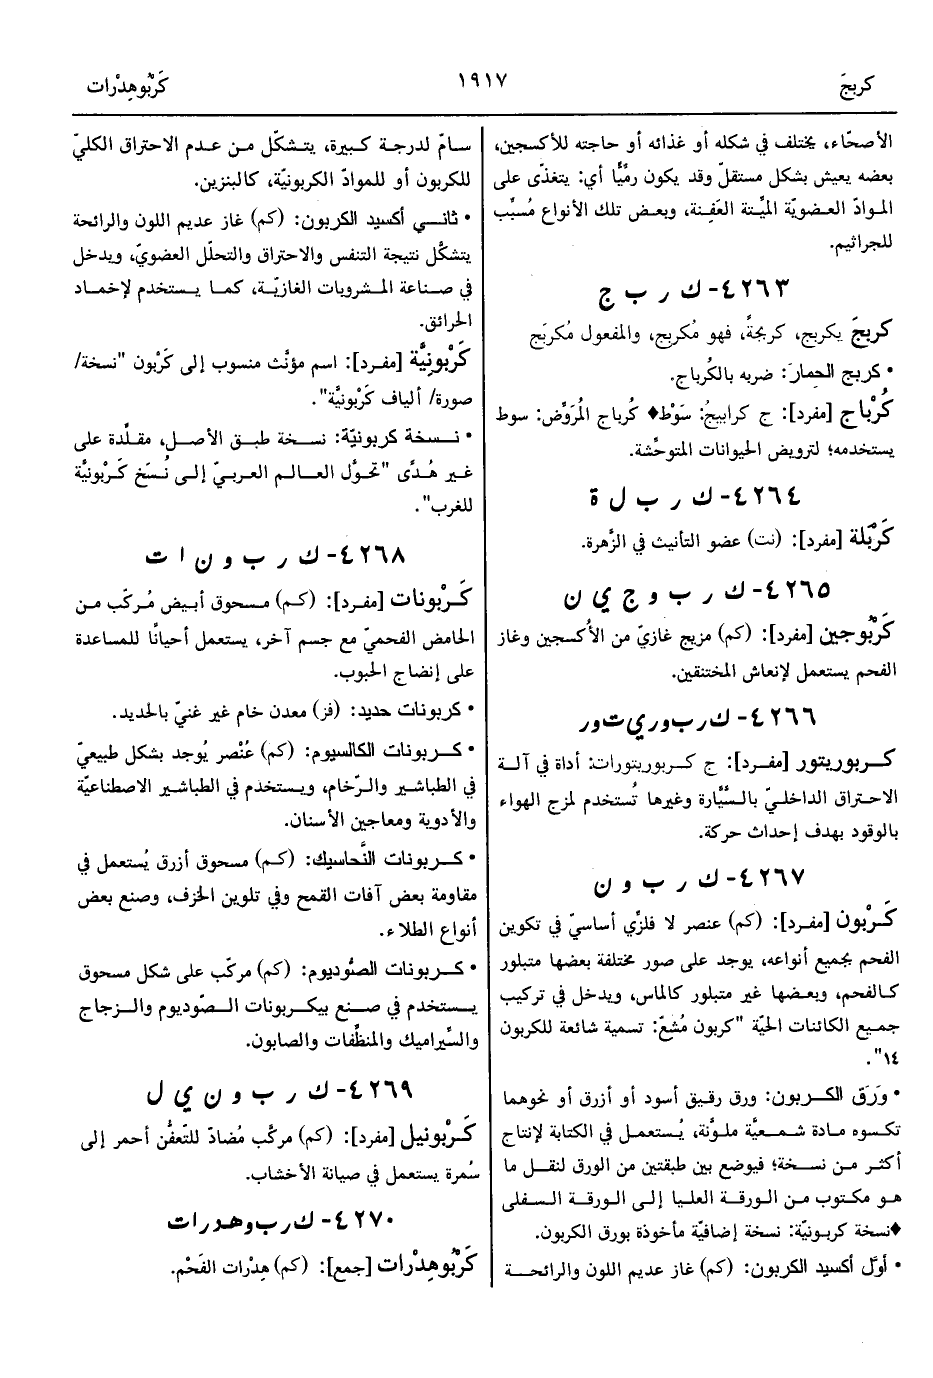 كربجَ
١٩١٧
كَرْبُوهِدْرات
الأصحَّاء، يختلف في شكله أو غذائه أو حاجته للأكسجين،
بعضه يعيش بشكل مستقلّ وقد يكون رمِّيًّا أي: يتغذّى على
المواد العضويّة الميِّتة العَفِنة، وبعض تلك الأنواع مُسبِّب
للجراثيم.
٤٢٦٣- ك ر ب ج
كربجَ يكربج، كربجةً، فهو مُكربِج، والمفعول مُكربَج
• كربج الحمارَ: ضربه بالكُرباج.
كُرْباج [مفرد]: ج كرابيجُ: سَوْط♦ كُرباج المُرَوِّض: سوط
يستخدمه؛ لترويض الحيوانات المتوحِّشة.
٤٢٦٤- ك ر ب ل ة
كَرْبَلة [مفرد]: (نت) عضو التأنيث في الزَّهرة.
٤٢٦٥- ك ر ب و ج ي ن
كَرْبُوجين [مفرد]: (كم) مزيج غازيّ من الأُكسجين وغاز
الفحم يستعمل لإنعاش المختنقين.
٤٢٦٦- ك ر ب و ر ي ت و ر
كربوريتور [مفرد]: ج كربوريتورات: أداة في آلة
الاحتراق الداخليّ بالسَّيَّارة وغيرها تُستخدم لمزج الهواء
بالوقود بهدف إحداث حركة.
٤٢٦٧- ك ر ب و ن
كَرْبون [مفرد]: (كم) عنصر لا فلزّي أساسيّ في تكوين
الفحم بجميع أنواعه، يوجد على صور مختلفة بعضها متبلور
كالفحم، وبعضها غير متبلور كالماس، ويدخل في تركيب
جميع الكائنات الحيّة "كربون مُشعّ: تسمية شائعة للكربون
١٤".
• وَرَق الكربون: ورق رقيق أسود أو أزرق أو نحوهما
تكسوه مادة شمعيَّة ملوَّنة، يُستعمل في الكتابة لإنتاج
أكثر من نسخة؛ فيوضع بين طبقتين من الورق لنقل ما
هو مكتوب من الورقة العليا إلى الورقة السفلى
♦نسخة كربونيّة: نسخة إضافيّة مأخوذة بورق الكربون.
• أوّل أكسيد الكربون: (كم) غاز عديم اللون والرائحة
سامّ لدرجة كبيرة، يتشكّل من عدم الاحتراق الكليّ
للكربون أو للموادّ الكربونيّة، كالبنزين.
• ثاني أكسيد الكربون: (كم) غاز عديم اللون والرائحة
يتشكَّل نتيجة التنفس والاحتراق والتحلّل العضويّ، ويدخل
في صناعة المشروبات الغازيّة، كما يستخدم لإخماد
الحرائق.
كَرْبونيَّة [مفرد]: اسم مؤنَّث منسوب إلى كَرْبون "نسخة/
صورة/ ألياف كَرْبونيَّة".
• نسخة كربونيّة: نسخة طبق الأصل، مقلّدة على
غير هُدًى "تحوُّل العالم العربيّ إلى نُسَخ كَرْبونيَّة
للغرب".
٤٢٦٨- ك ر ب و ن ا ت
كَرْبونات [مفرد]: (كم) مسحوق أبيض مُركّب من
الحامض الفحميّ مع جسم آخر، يستعمل أحيانًا للمساعدة
على إنضاج الحبوب.
• كربونات حديد: (فز) معدن خام غير غنيّ بالحديد.
• كربونات الكالسيوم: (كم) عُنْصر يُوجد بشكل طبيعيّ
في الطباشير والرّخام، ويستخدم في الطباشير الاصطناعيّة
والأدوية ومعاجين الأسنان.
• كربونات النَّحاسيك: (كم) مسحوق أزرق يُستعمل في
مقاومة بعض آفات القمح وفي تلوين الخزف، وصنع بعض
أنواع الطلاء.
• كربونات الصُّوديوم: (كم) مركّب على شكل مسحوق
يستخدم في صنع بيكربونات الصّوديوم والزجاج
والسِّيراميك والمنظِّفات والصابون.
٤٢٦٩- ك ر ب و ن ي ل
كَرْبونيل [مفرد]: (كم) مركّب مُضادّ للتّعفُّن أحمر إلى
سُمرة يستعمل في صيانة الأخشاب.
٤٢٧٠- ك ر ب و هـ د ر ا ت
كَرْبُوهِدْرات [جمع]: (كم) هِدْرات الفَحْم.